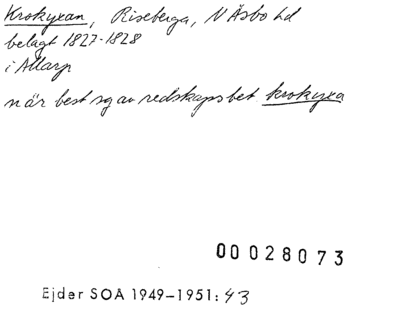 Krokyxan, Riseberga, N Åsbo hd
belagt 1827-1828
i Allarp
n är best sg av redskapsbet krokyxa
00028073
Ejder SOÅ 1949-1951: 43